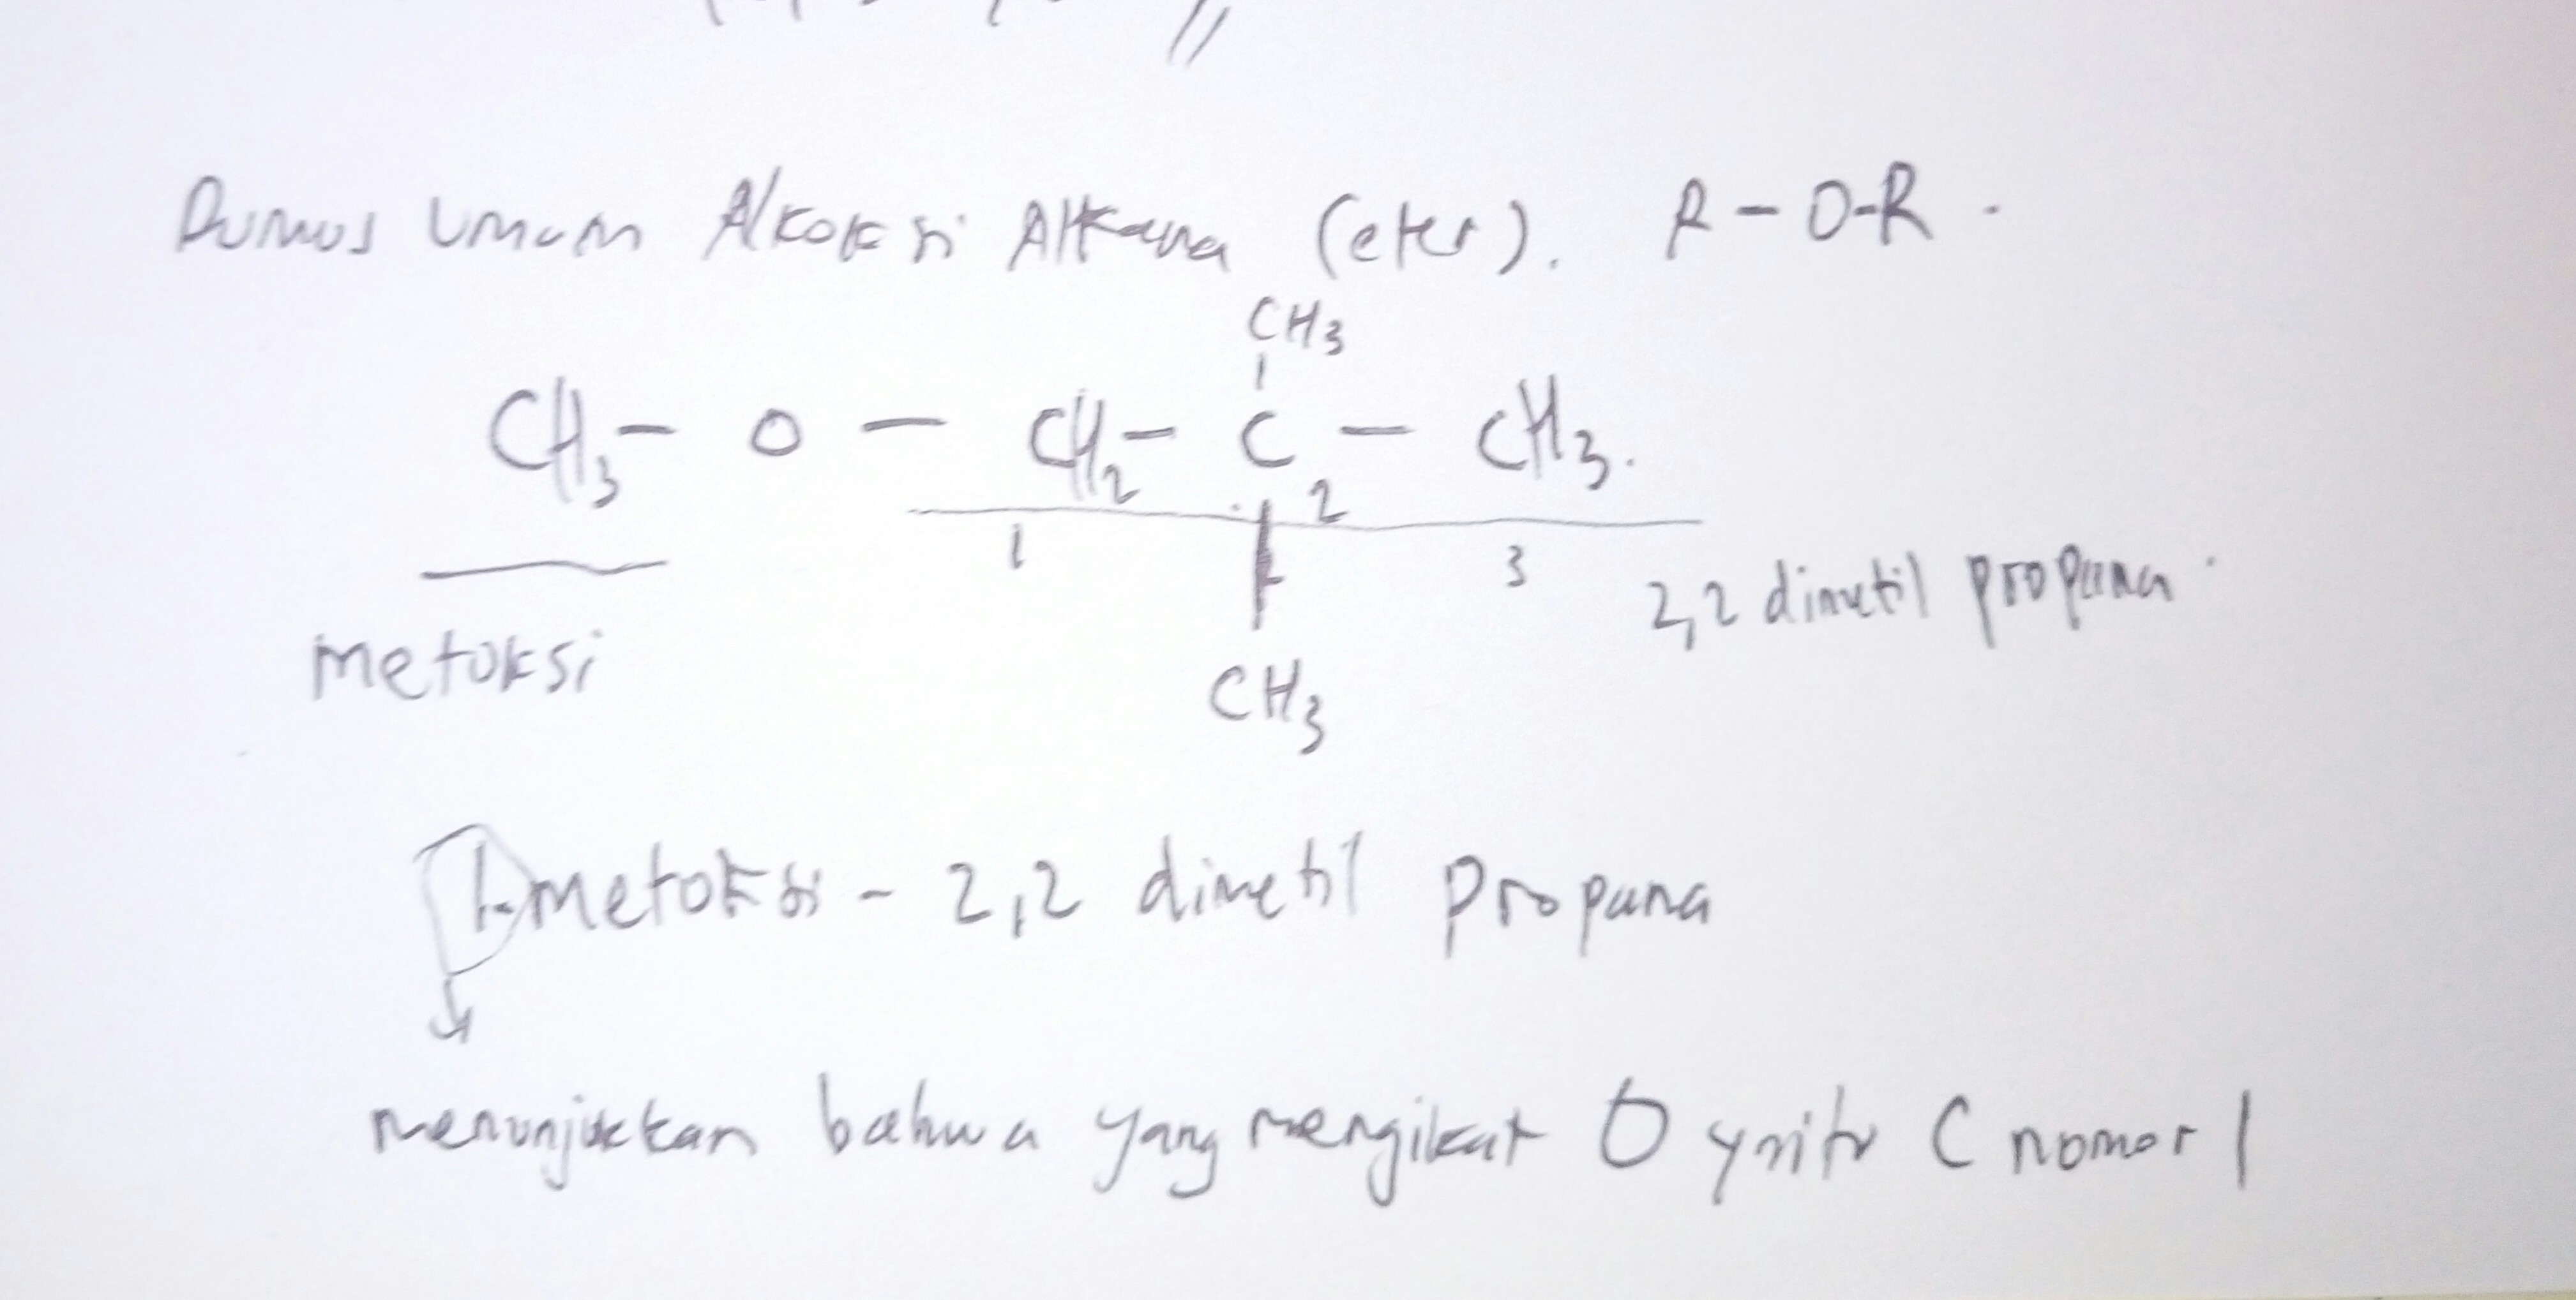 Rumus Umum Alkoksi Alkana (eter). R - O-R .
CH3
CH3 - O - CH2 - C - CH3.
1 2 3
2,2 dimetil propana
metoksi
CH3
1-metoksi - 2,2 dimetil propana
menunjukkan bahwa yang mengikat O yaitu C nomor 1